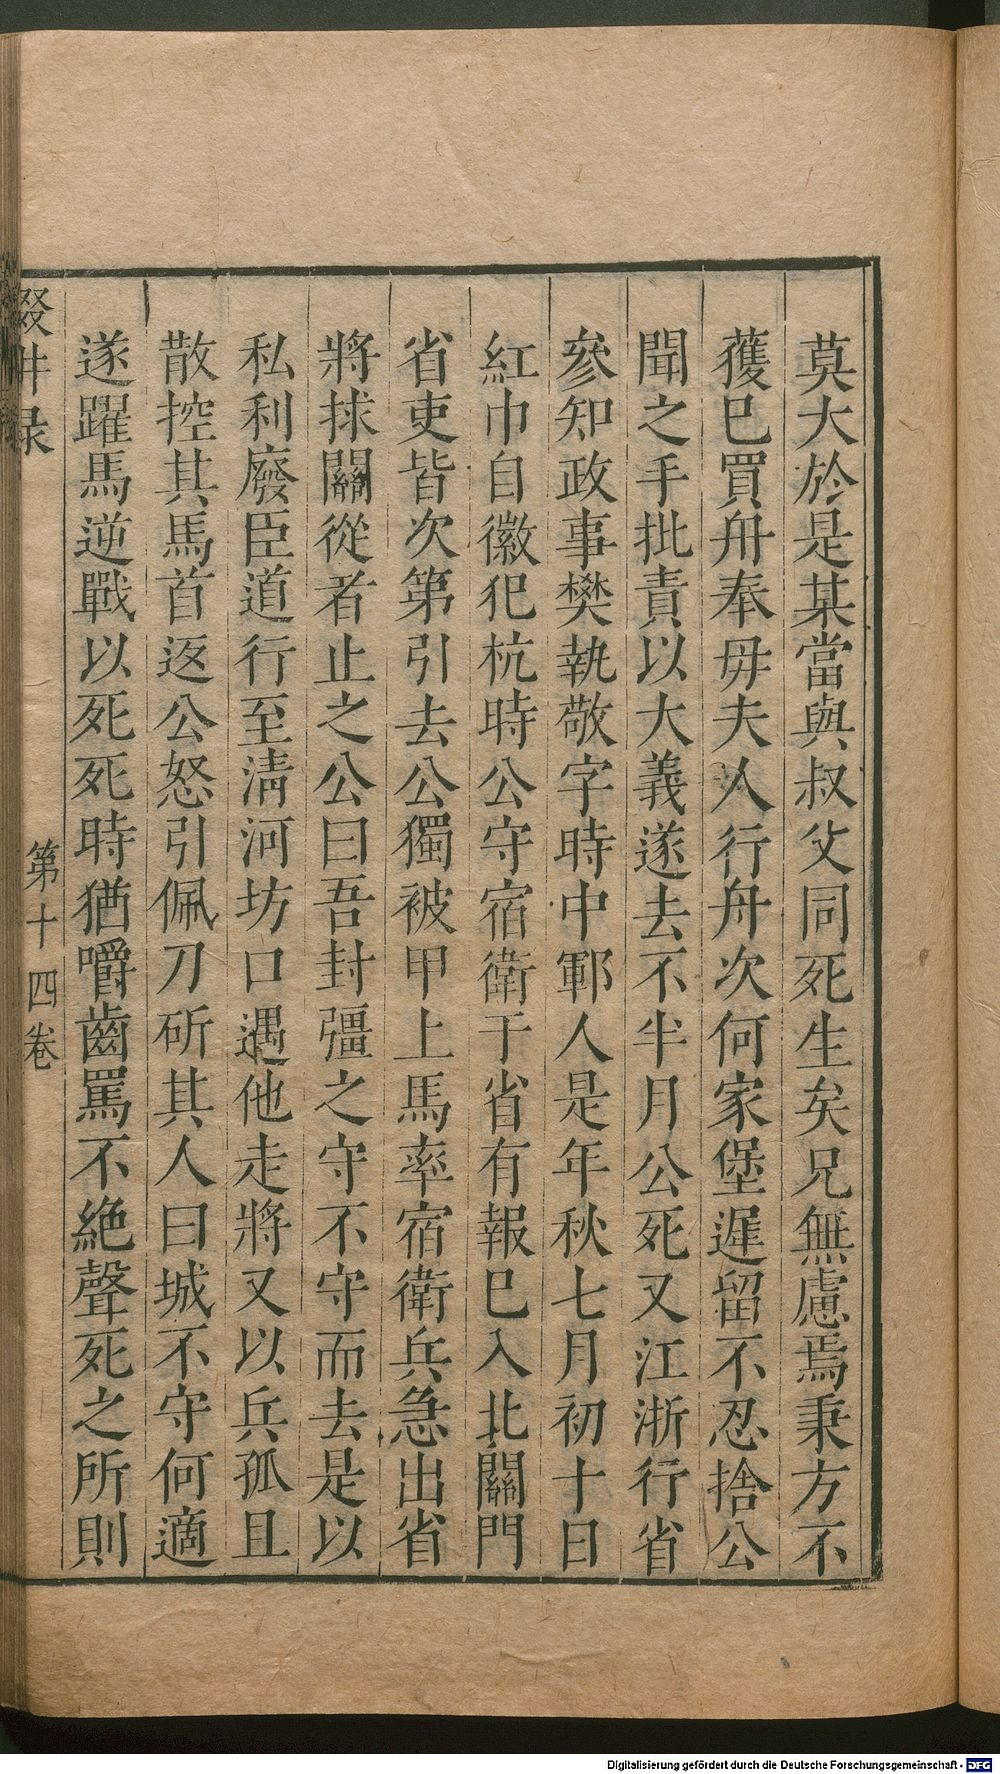 莫大於是某當與叔父同死生矣兄無慮焉秉方不
獲已買舟奉毋夫人行舟次何家堡遲留不忍捨公
聞之手批責以大義遂去不半月公死又江浙行省
參知政事樊執敬字時中鄆人是年秋七月初十日
紅巾自徽犯杭時公守宿衛于省有報已入北關門
省吏皆次第引去公獨被甲上馬率宿衛兵急出省
將捄關從者止之公曰吾封彊之守不守而去是以
私利廢臣道行至淸河坊口遇他走將又以兵孤且
散控其馬首返公怒引佩刀斫其人曰城不守何適
遂躍馬逆戰以死死時猶嚼齒罵不絶聲死之所則
輟畊录
第十四卷
Digitalisierung gefördert durch die Deutsche Forschungsgemeinschaft - DFG